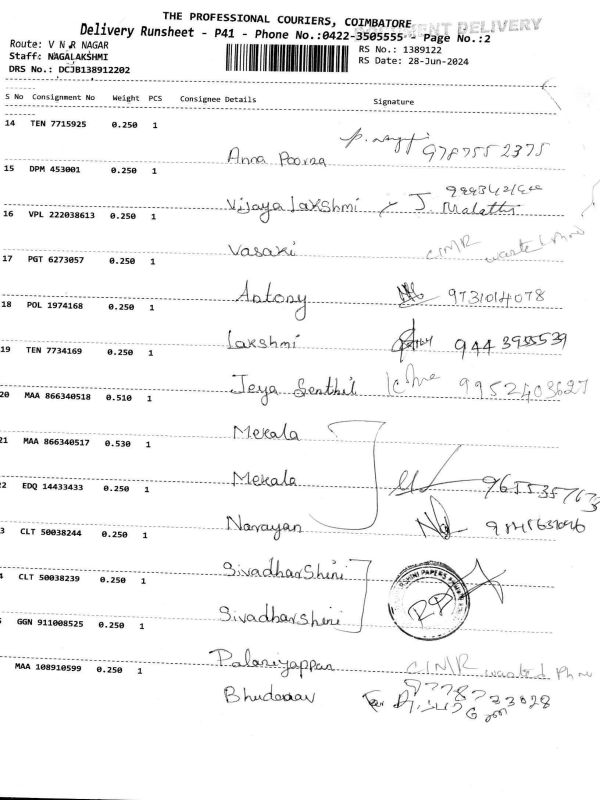 THE PROFESSIONAL COURIERS, COIMBATORE
DELIVERY
Delivery Runsheet - P41 - Phone No.:0422-3505555 - Page No.:2
Route: V N R NAGAR
RS No.: 1389122
Staff: NAGALAKSHMI
RS Date: 28-Jun-2024
DRS No.: DCJB138912202
S No Consignment No Weight PCS Consignee Details Signature
14 TEN 7715925 0.250 1
Anna Poorza 9787552375
15 DPM 453001 0.250 1
Vijaya Lakshmi J. Malathi
16 VPL 222038613 0.250 1
Vasaki
17 PGT 6273057 0.250 1
Antony 9731014078
18 POL 1974168 0.250 1
Lakshmi 944 3955539
19 TEN 7734169 0.250 1
Jeya Senthil 9952403627
20 MAA 866340518 0.510 1
Mekala
21 MAA 866340517 0.530 1
Mekala
2 EDQ 14433433 0.250 1
Narayan
3 CLT 50038244 0.250 1
Sivadharshini
CLT 50038239 0.250 1
Sivadharshini
GGN 911008525 0.250 1
Palaniyappan
MAA 108910599 0.250 1